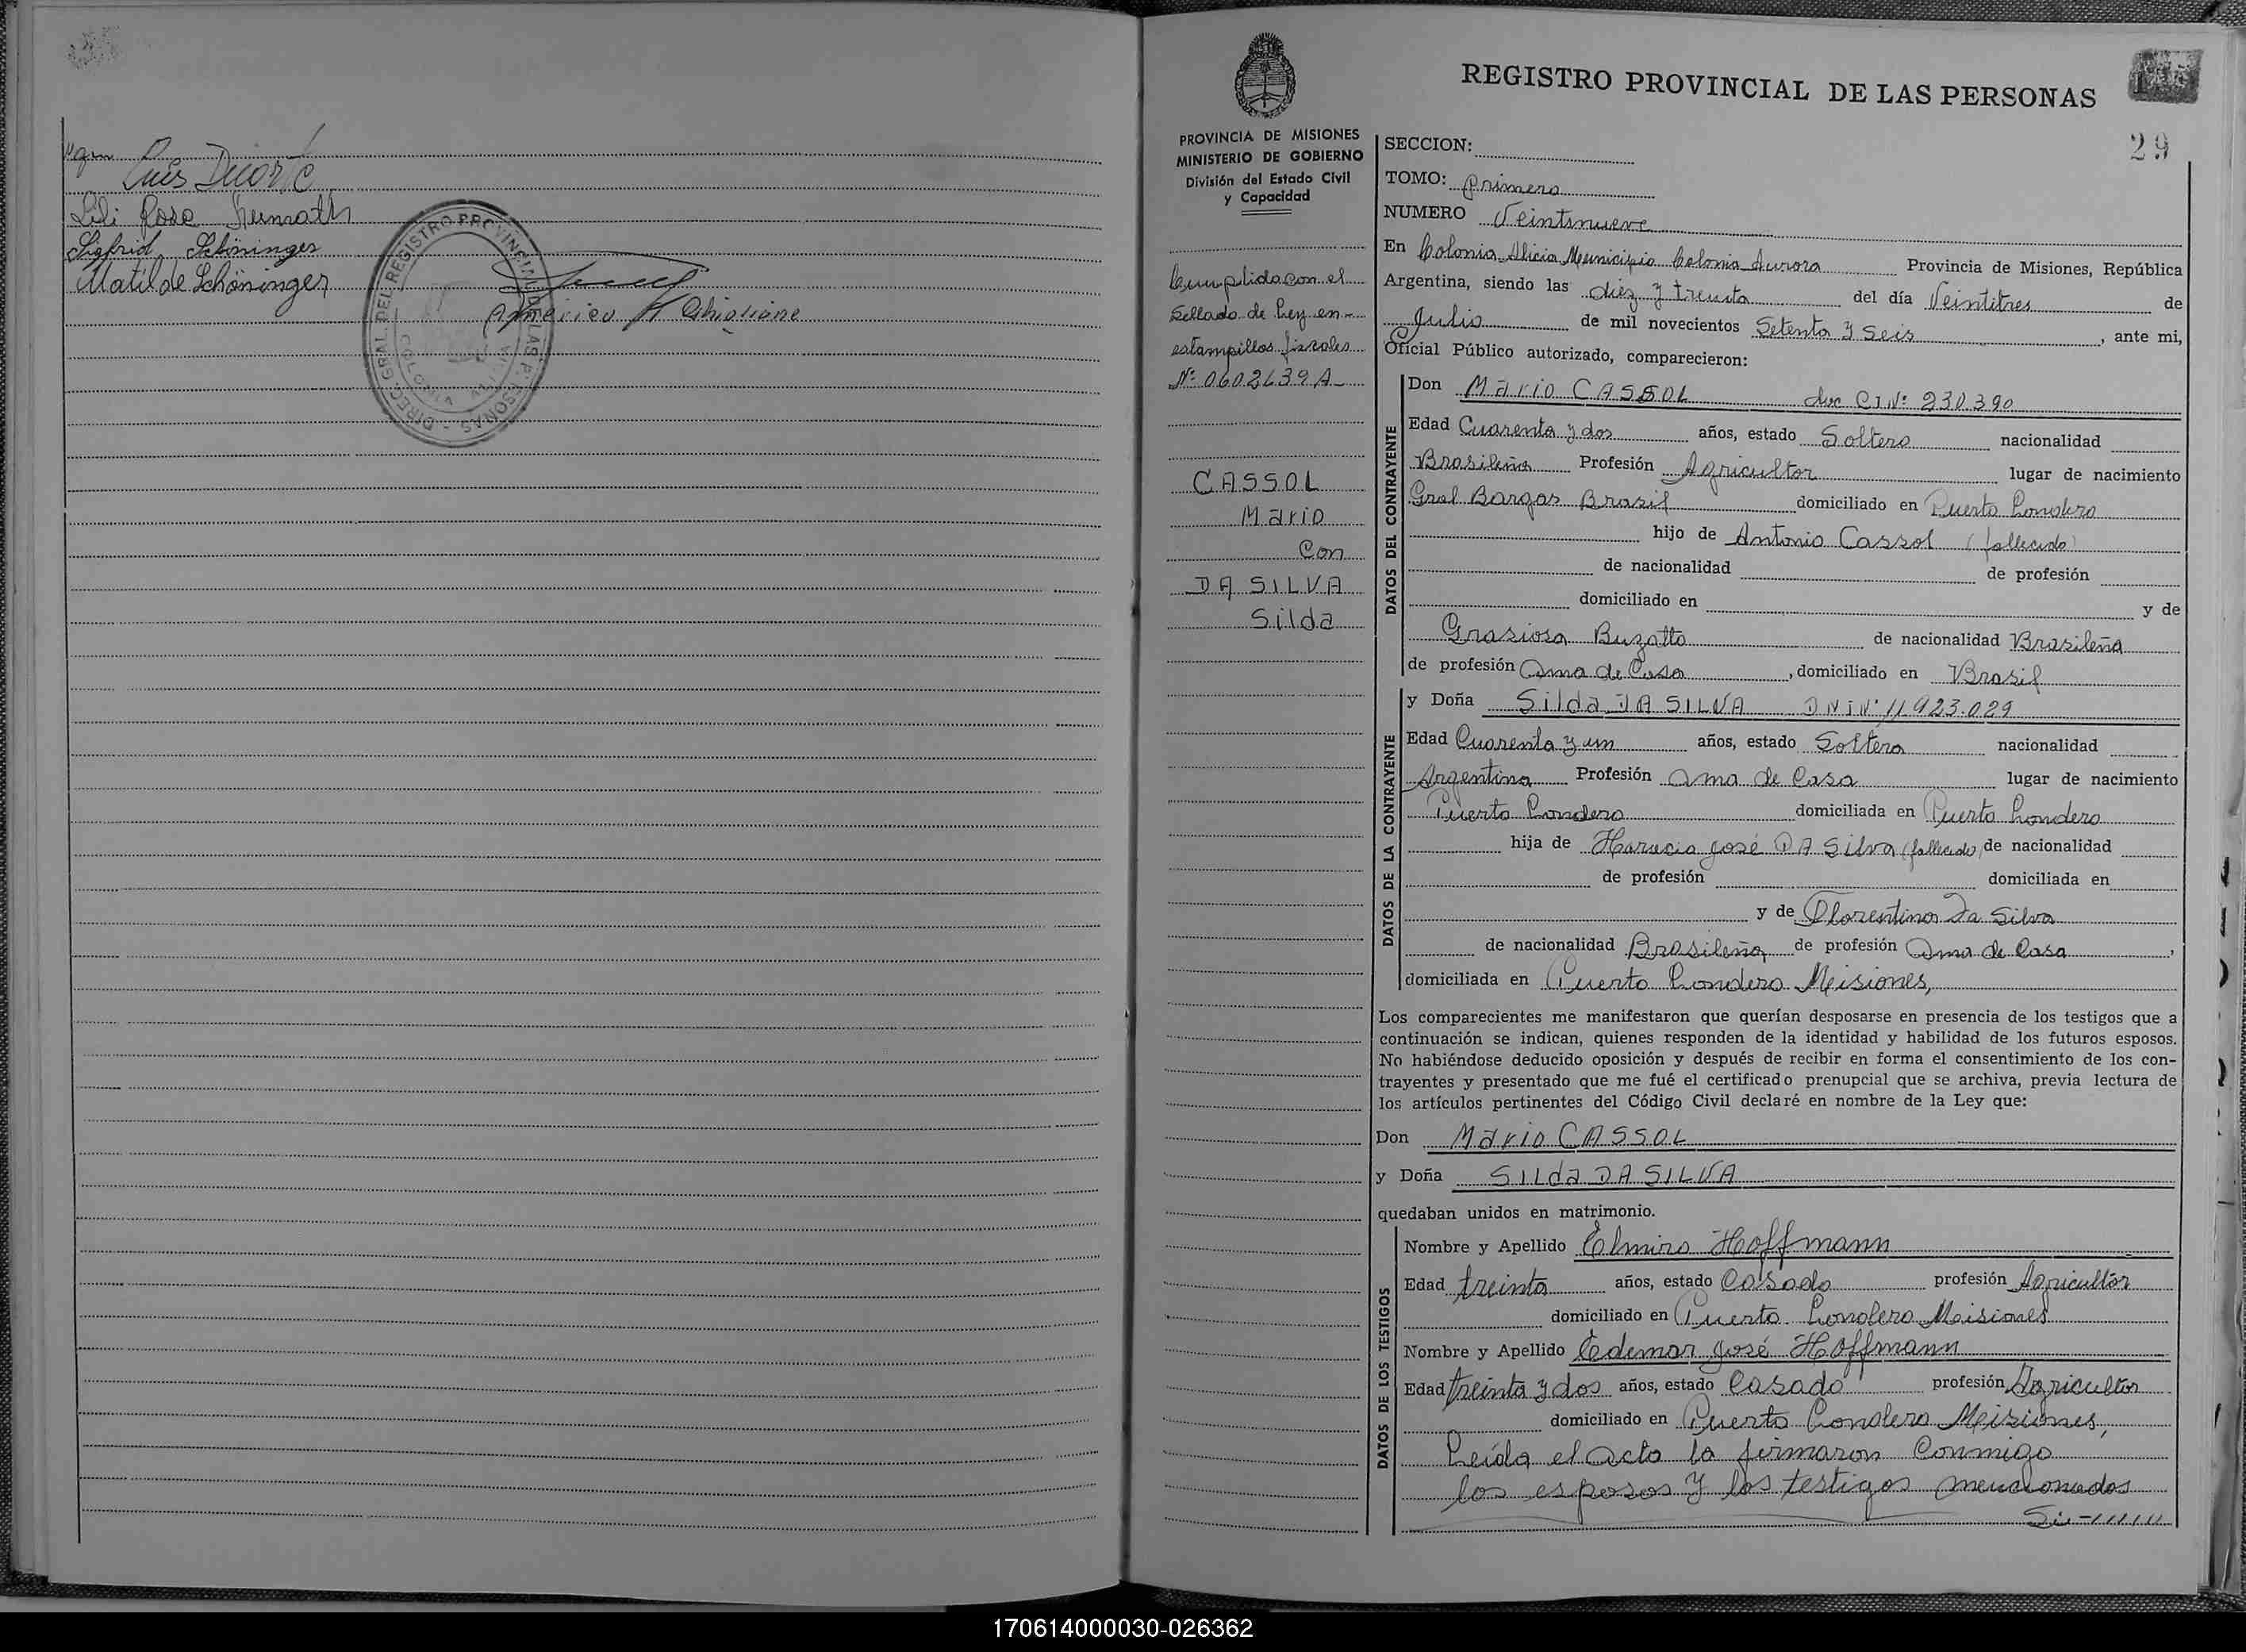 Luis Decorte
Lili Rosa Kunrath
Sigfrid Schöninger
Matilde Schöninger
Américo A Ghiglione
DIREC. GRAL. DEL REGISTRO PROVINCIAL DE LAS PERSONAS
COLONIA ALICIA
REGISTRO PROVINCIAL DE LAS PERSONAS
29
PROVINCIA DE MISIONES
MINISTERIO DE GOBIERNO
División del Estado Civil
y Capacidad
Cumplido con el
Sellado de Ley en
estampillas fiscales
Nº 0602639 A
CASSOL
Mario
Con
DA SILVA
Silda
SECCION:
TOMO: Primero
NUMERO Veintinueve
En Colonia Alicia Municipio Colonia Aurora Provincia de Misiones, República
Argentina, siendo las diez y treinta del día Veintitres de
Julio de mil novecientos Setenta y Seis, ante mi,
Oficial Público autorizado, comparecieron:
DATOS DEL CONTRAYENTE
Don Mario CASSOL doc CI Nº 230.390
Edad Cuarenta y dos años, estado Soltero nacionalidad
Brasileña Profesión Agricultor lugar de nacimiento
Gral Bargas Brasil domiciliado en Puerto Londero
hijo de Antonio Cassol (fallecido)
de nacionalidad de profesión
domiciliado en y de
Grasiosa Buzatto de nacionalidad Brasileña
de profesión Ama de Casa, domiciliado en Brasil
DATOS DE LA CONTRAYENTE
y Doña Silda DA SILVA DNI Nº 11.923.029
Edad Cuarenta y un años, estado Soltera nacionalidad
Argentina Profesión Ama de Casa lugar de nacimiento
Puerto Londero domiciliada en Puerto Londero
hija de Horacio José DA Silva (fallecido) de nacionalidad
de profesión domiciliada en
y de Florentina Da Silva
de nacionalidad Brasileña de profesión Ama de Casa,
domiciliada en Puerto Londero Misiones,
Los comparecientes me manifestaron que querían desposarse en presencia de los testigos que a
continuación se indican, quienes responden de la identidad y habilidad de los futuros esposos.
No habiéndose deducido oposición y después de recibir en forma el consentimiento de los con-
trayentes y presentado que me fué el certificado prenupcial que se archiva, previa lectura de
los artículos pertinentes del Código Civil declaré en nombre de la Ley que:
Don Mario CASSOL
y Doña SILda DA SILVA
quedaban unidos en matrimonio.
DATOS DE LOS TESTIGOS
Nombre y Apellido Elmiro Hoffmann
Edad treinta años, estado Casado profesión Agricultor
domiciliado en Puerto Londero Misiones
Nombre y Apellido Edemar José Hoffmann
Edad treinta y dos años, estado Casado profesión Agricultor
domiciliado en Puerto Londero Misiones,
Leída el acta la firmaron Conmigo
los esposos y los testigos mencionados
170614000030-026362